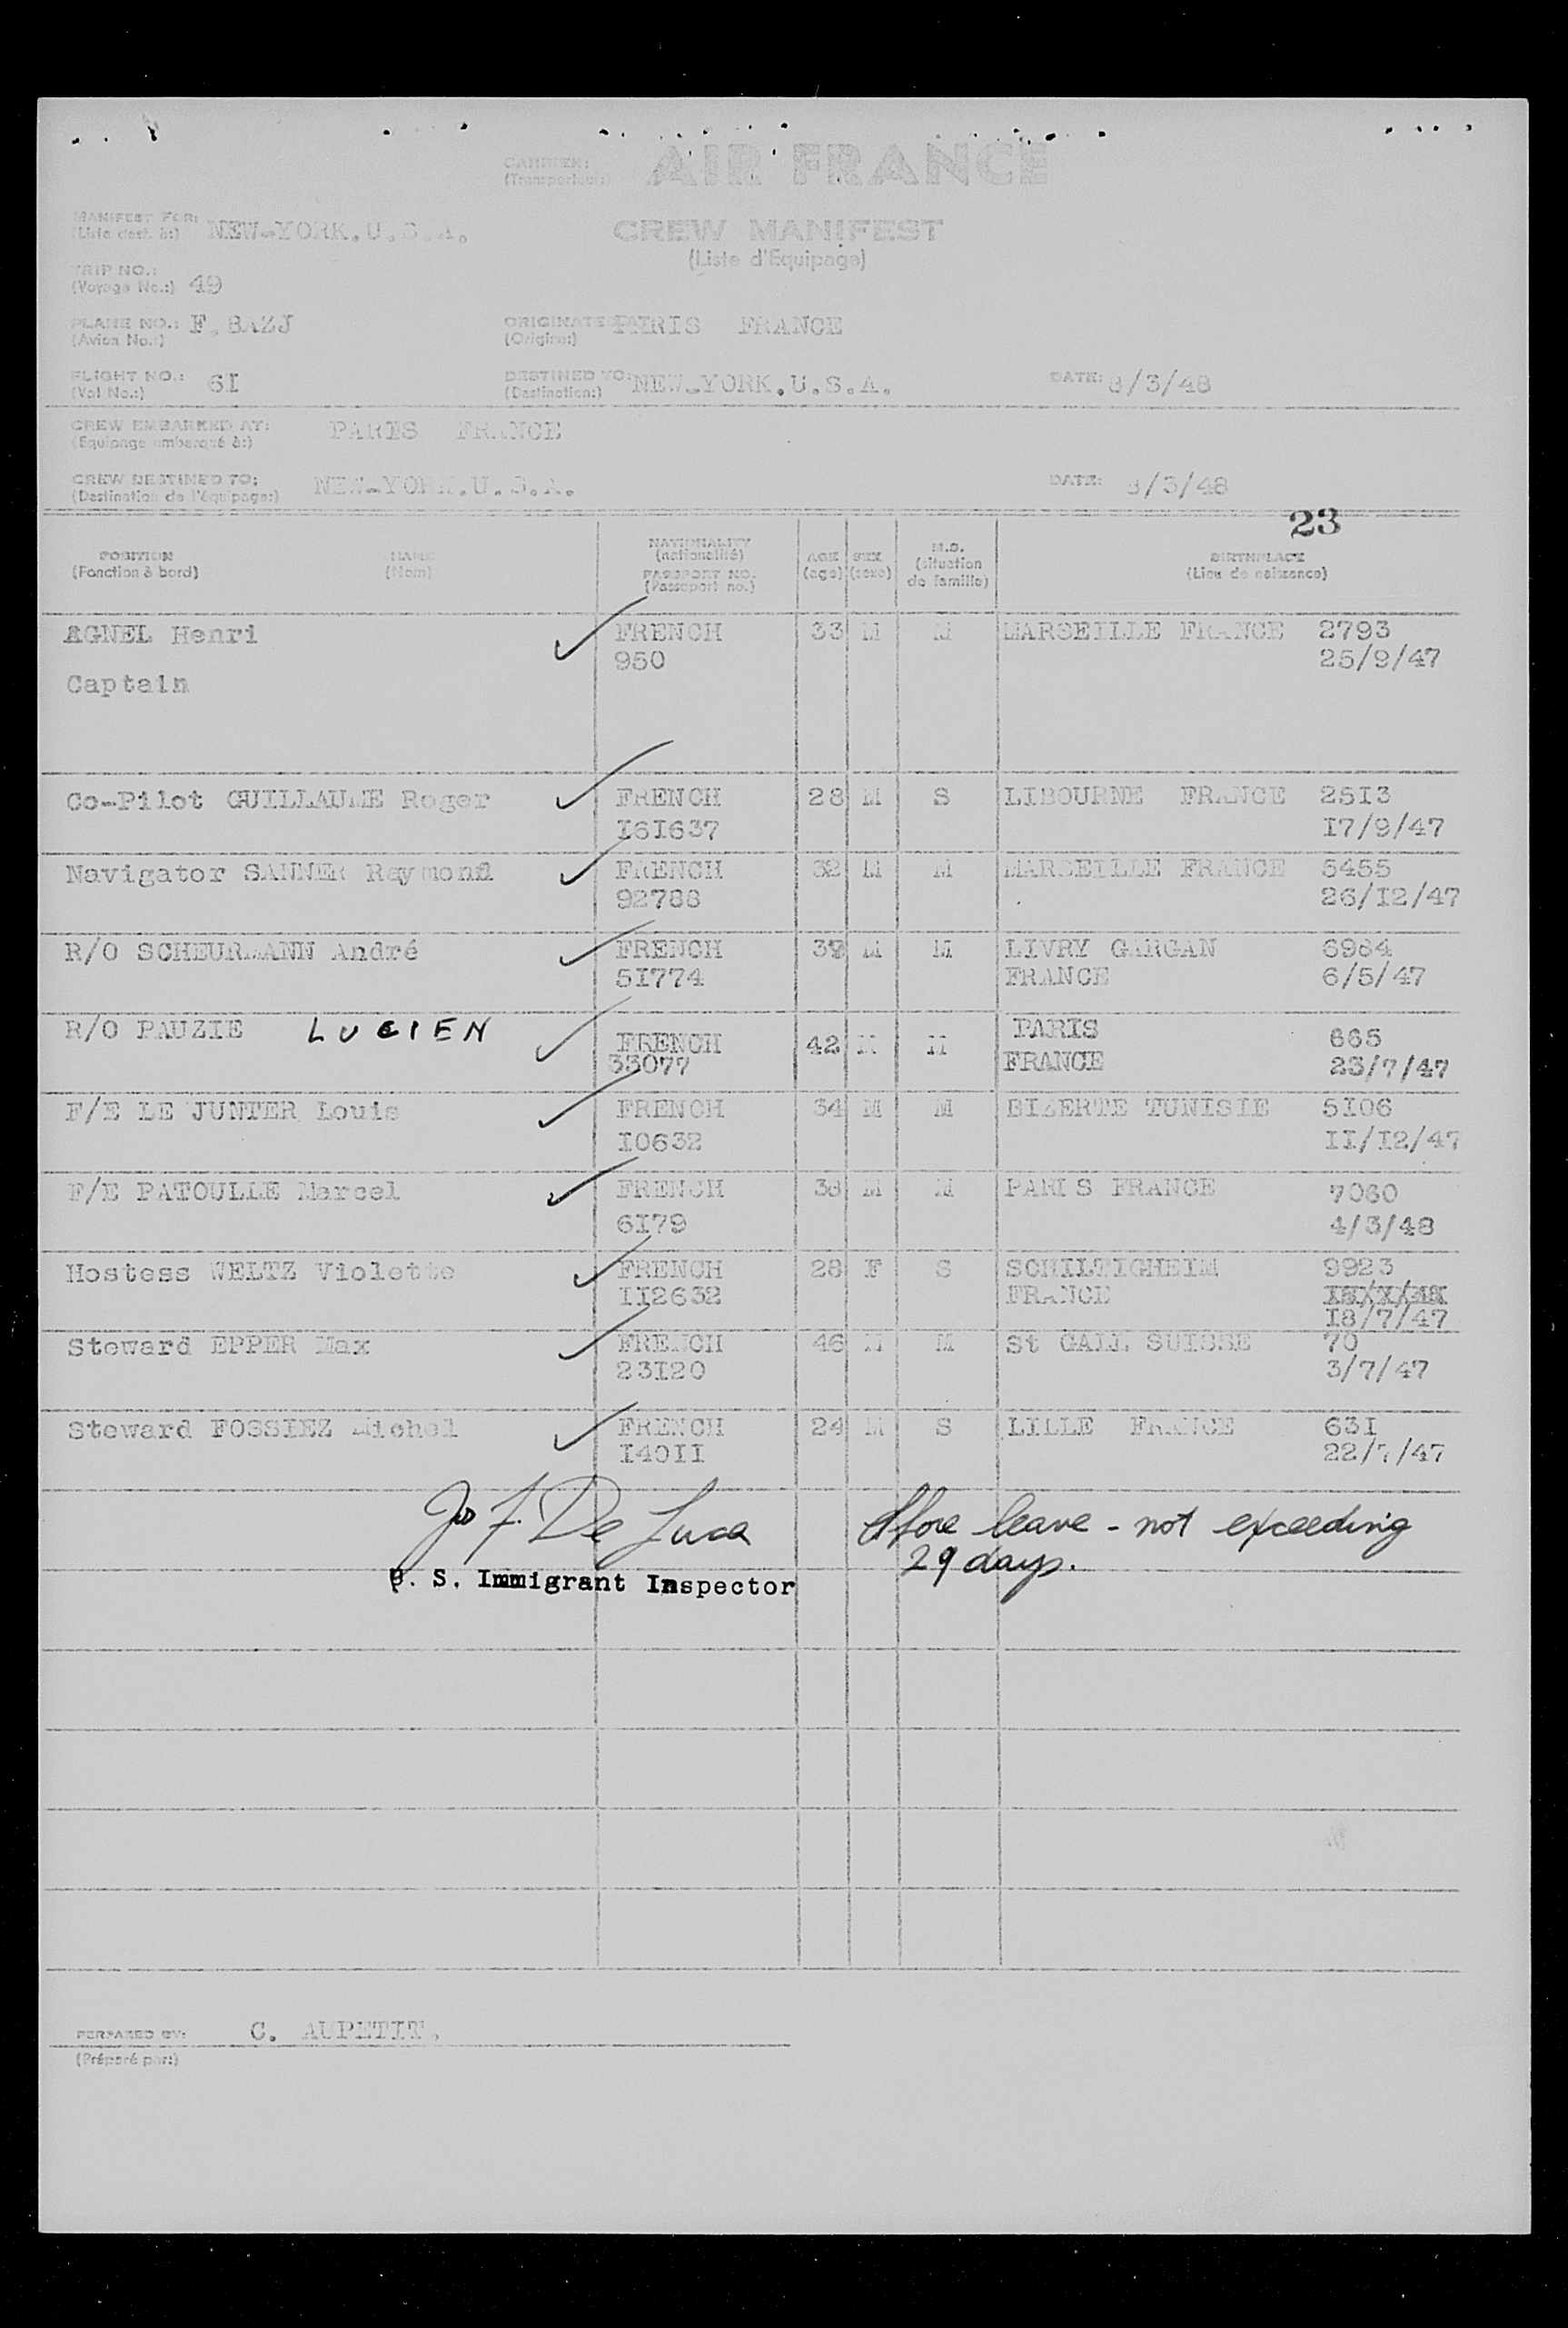 CARRIER: AIR FRANCE
(Transporteur:)
MANIFEST FOR: NEW-YORK.U.S.A.
(Liste dest. à:)
CREW MANIFEST
(Liste d'Equipage)
TRIP NO.:
(Voyage No.:) 49
PLANE NO.: F.BAZJ
(Avion No.:)
ORIGINATED PARIS FRANCE
(Origine:)
FLIGHT NO.: 6I
(Vol No.:)
DESTINED TO: NEW-YORK.U.S.A.
(Destination:)
DATE: 8/3/48
CREW EMBARKED AT: PARIS FRANCE
(Equipage embarqué à:)
CREW DESTINED TO: NEW-YORK.U.S.A.
(Destination de l'équipage:)
DATE: 8/3/48
23
POSITION
(Fonction à bord)
NAME
(Nom)
NATIONALITY
(nationalité)
PASSPORT NO.
(Passeport no.)
AGE
(age)
SEX
(sexe)
M.S.
(situation
de famille)
BIRTHPLACE
(Lieu de naissance)
AGNEL Henri FRENCH 33 M M MARSEILLE FRANCE 2793
950 25/9/47
Captain
Co-Pilot GUILLAUME Roger FRENCH 28 M S LIBOURNE FRANCE 25I3
I6I637 I7/9/47
Navigator SANNER Raymond FRENCH 32 M M MARSEILLE FRANCE 5455
92788 26/I2/47
R/O SCHEURMANN André FRENCH 39 M M LIVRY GARGAN 6984
5I774 FRANCE 6/5/47
R/O PAUZIE LUCIEN FRENCH 42 M M PARIS 665
33077 FRANCE 23/7/47
F/E LE JUNTER Louis FRENCH 34 M M BIZERTE TUNISIE 5I06
I0632 II/I2/47
F/E PATOULLE Marcel FRENCH 38 M M PARIS FRANCE 7060
6I79 4/3/48
Hostess WELTZ Violette FRENCH 28 F S SCHILTIGHEIM 9923
II2632 FRANCE
I8/7/47
Steward EPPER Max FRENCH 46 M M St GALL SUISSE 70
23I20 3/7/47
Steward FOSSIEZ Michel FRENCH 24 M S LILLE FRANCE 63I
I40II 22/7/47
Jos F. De Luca
U. S. Immigrant Inspector
Shore leave - not exceeding
29 days.
PERPARED BY: C. AUPETIT.
(Préparé par:)